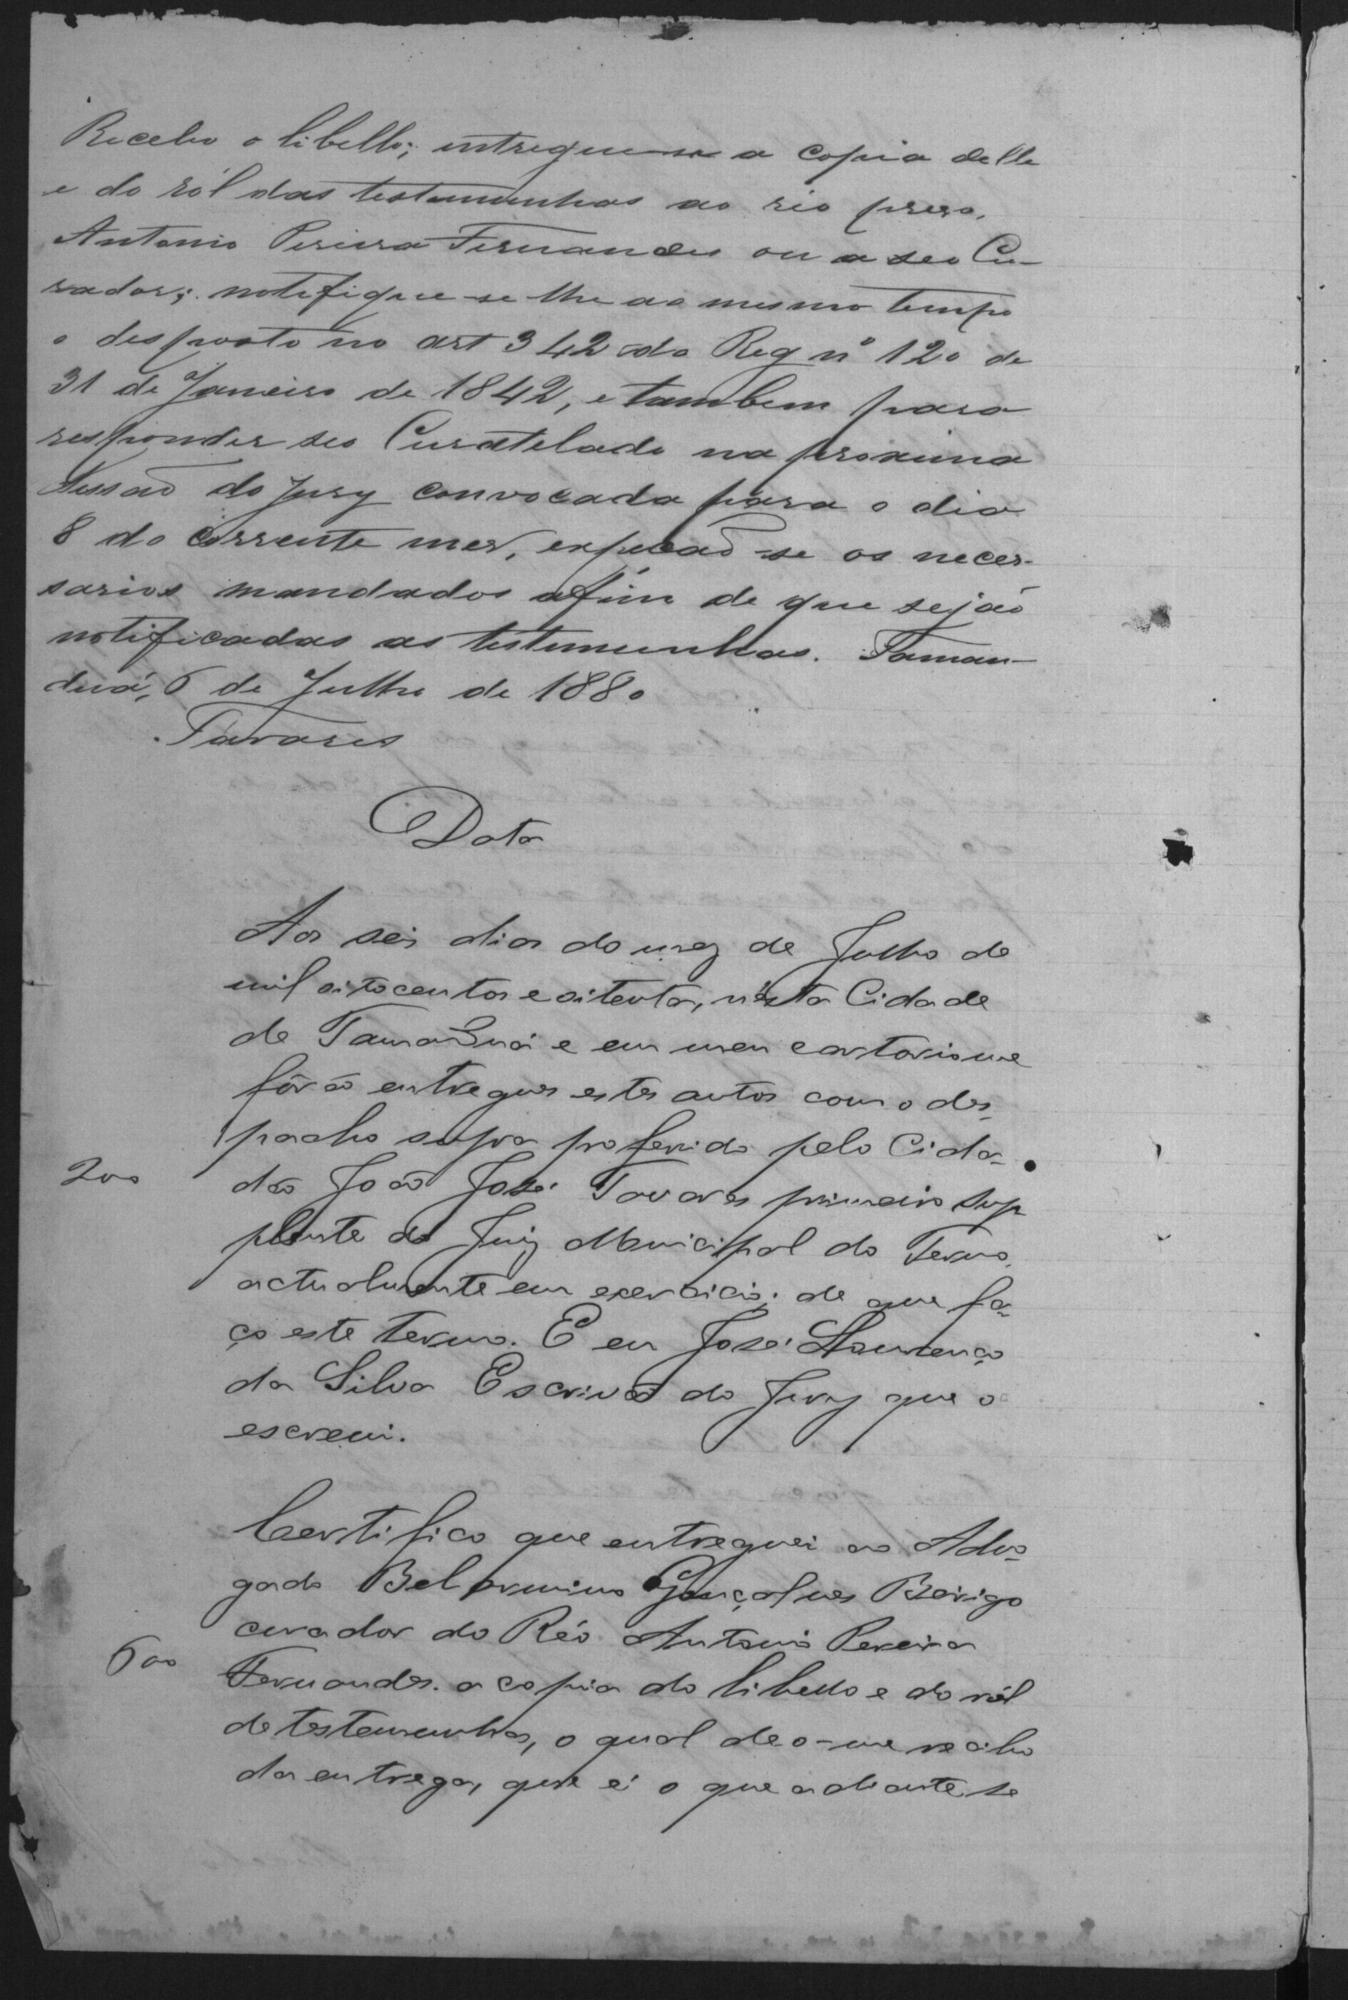 Recebo o libello; entregue-se a copia delle
e do ról das testemunhas ao réo preso,
Antonio Pereira Fernandes ou a seo Cu-
rador; notifique-se lhe ao mesmo tempo
o desposto no art 342 do Reg nº 120 de
31 de Janeiro de 1842, e tambem para
responder seo Curatelado na proxima
Sessaõ do Jury convocada para o dia
8 do corrente mes, expeçaõ-se os neces-
sarios mandados afim de que sejaõ
notificadas as testemunhas. Taman-
duá, 6 de Julho de 1880
Tavares
Data
Aos seis dias do mez de Julho de
mil oitocentos e oitenta, n'esta Cidade
de Tamanduá e em meu cartorio me
fôrão entregues estes autos com o des-
pacho supra proferido pelo Cida-
200
dão João José Tavares primeiro sup
plente do Juiz Municipal do Termo,
actualmente em exercicio; de que fa-
ço este termo. E eu José Lourenço
da Silva Escrivão do Jury que o
escrevi.
Certifico que entreguei ao Advo-
gado Belarmino Gonçalves
curador do Réo Antonio Pereira
600
Fernandes. a copia do libello e do ról
de testemunhas, o qual deo-me recibo
da entrega, que é o que adiante se